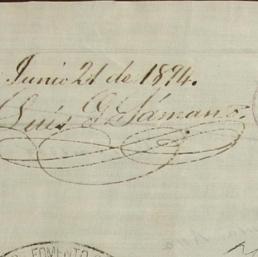 Junio 21 de 1894.
Luis G. Sámano.
FOMENTO